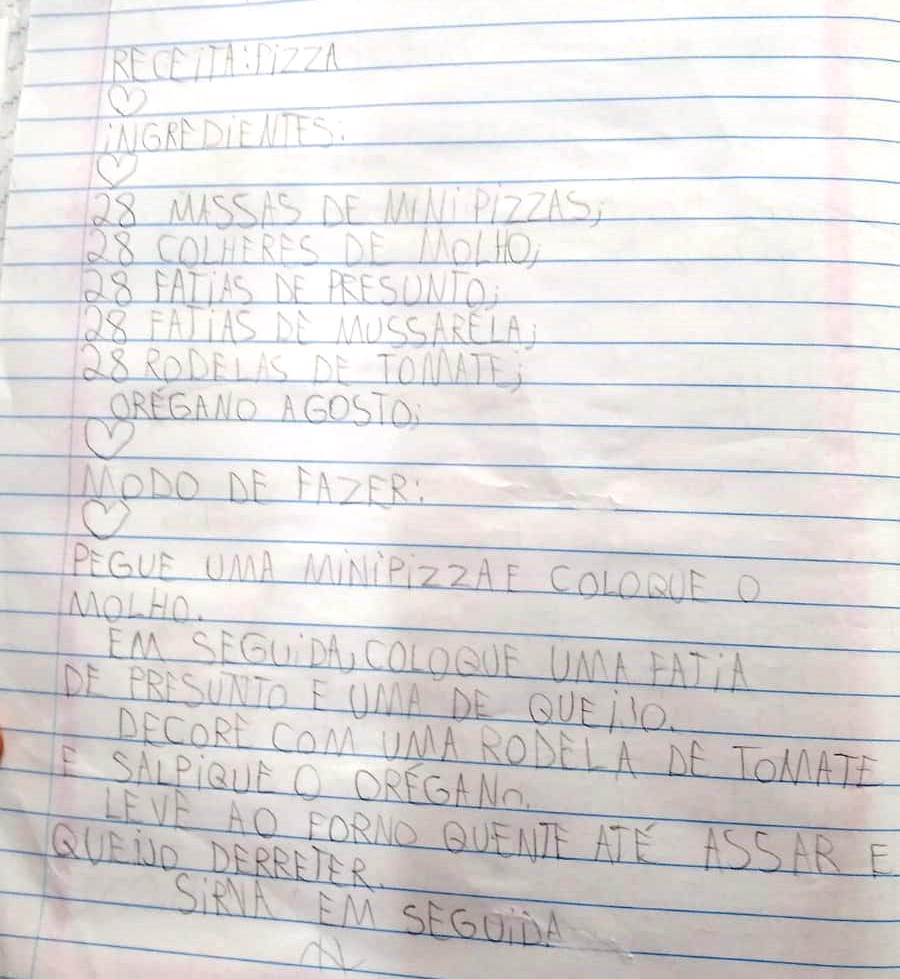 RECEITA: PIZZA
INGREDIENTES:
28 MASSAS DE MINI PIZZAS;
28 COLHERES DE MOLHO;
28 FATIAS DE PRESUNTO;
28 FATIAS DE MUSSARELA;
28 RODELAS DE TOMATE;
ORÉGANO AGOSTO;
MODO DE FAZER:
PEGUE UMA MINIPIZZA E COLOQUE O
MOLHO.
EM SEGUIDA, COLOQUE UMA FATIA
DE PRESUNTO E UMA DE QUEIJO.
DECORE COM UMA RODELA DE TOMATE
E SALPIQUE O ORÉGANO.
LEVE AO FORNO QUENTE ATÉ ASSAR E
QUEIJO DERRETER.
SIRVA EM SEGUIDA